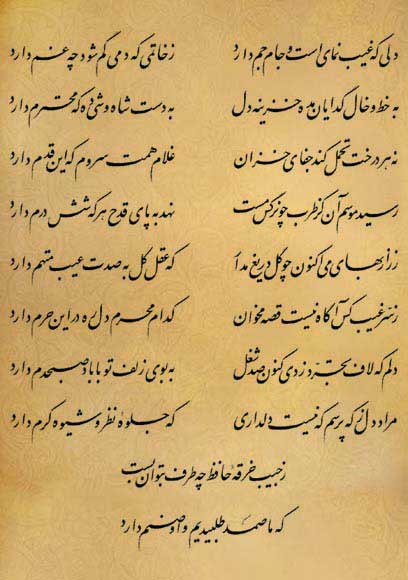 دلی که غیب نمای است و جام جم دارد ز خاتمی که دمی گم شود چه غم دارد
به خط و خال گدایان مده خزینه دل به دست شاه وشی ده که محترم دارد
نه هر درخت تحمل کند جفای خزان غلام همت سروم که این قدم دارد
رسید موسم آن کز طرب چو نرگس مست نهد به پای قدح هر که شش درم دارد
زر از بهای می اکنون چو گل دریغ مدار که عقل کل به صدت عیب متهم دارد
ز سر غیب کس آگاه نیست قصه مخوان کدام محرم دل ره در این حرم دارد
دلم که لاف تجرد زدی کنون صد شغل به بوی زلف تو با باد صبحدم دارد
مراد دل ز که پرسم که نیست دلداری که جلوه نظر و شیوه کرم دارد
ز جیب خرقه حافظ چه طرف بتوان بست
که ما صمد طلبیدیم و او صنم دارد